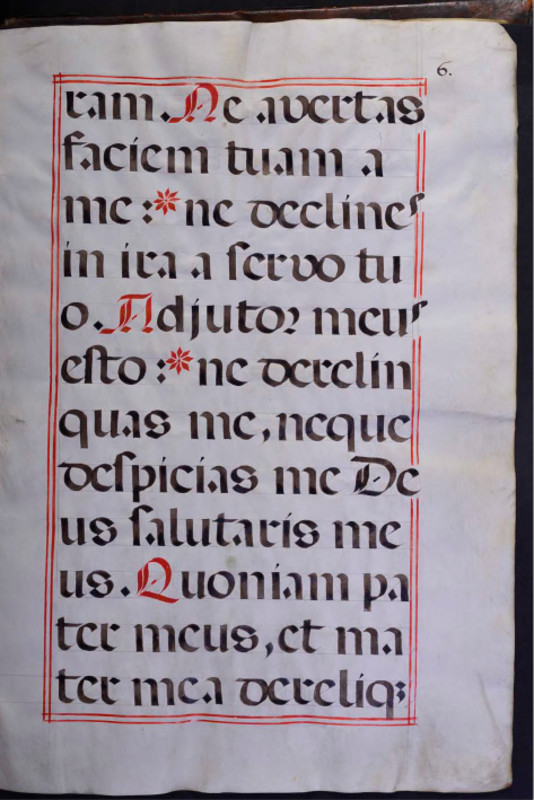 6.
ram. Ne avertas
faciem tuam a
me : * ne declines
in ira a servo tu
o. Adjutor meus
esto : * ne derelin
quas me, neque
despicias me De
us salutaris me
us. Quoniam pa
ter meus, et ma
ter mea dereliqꝫ